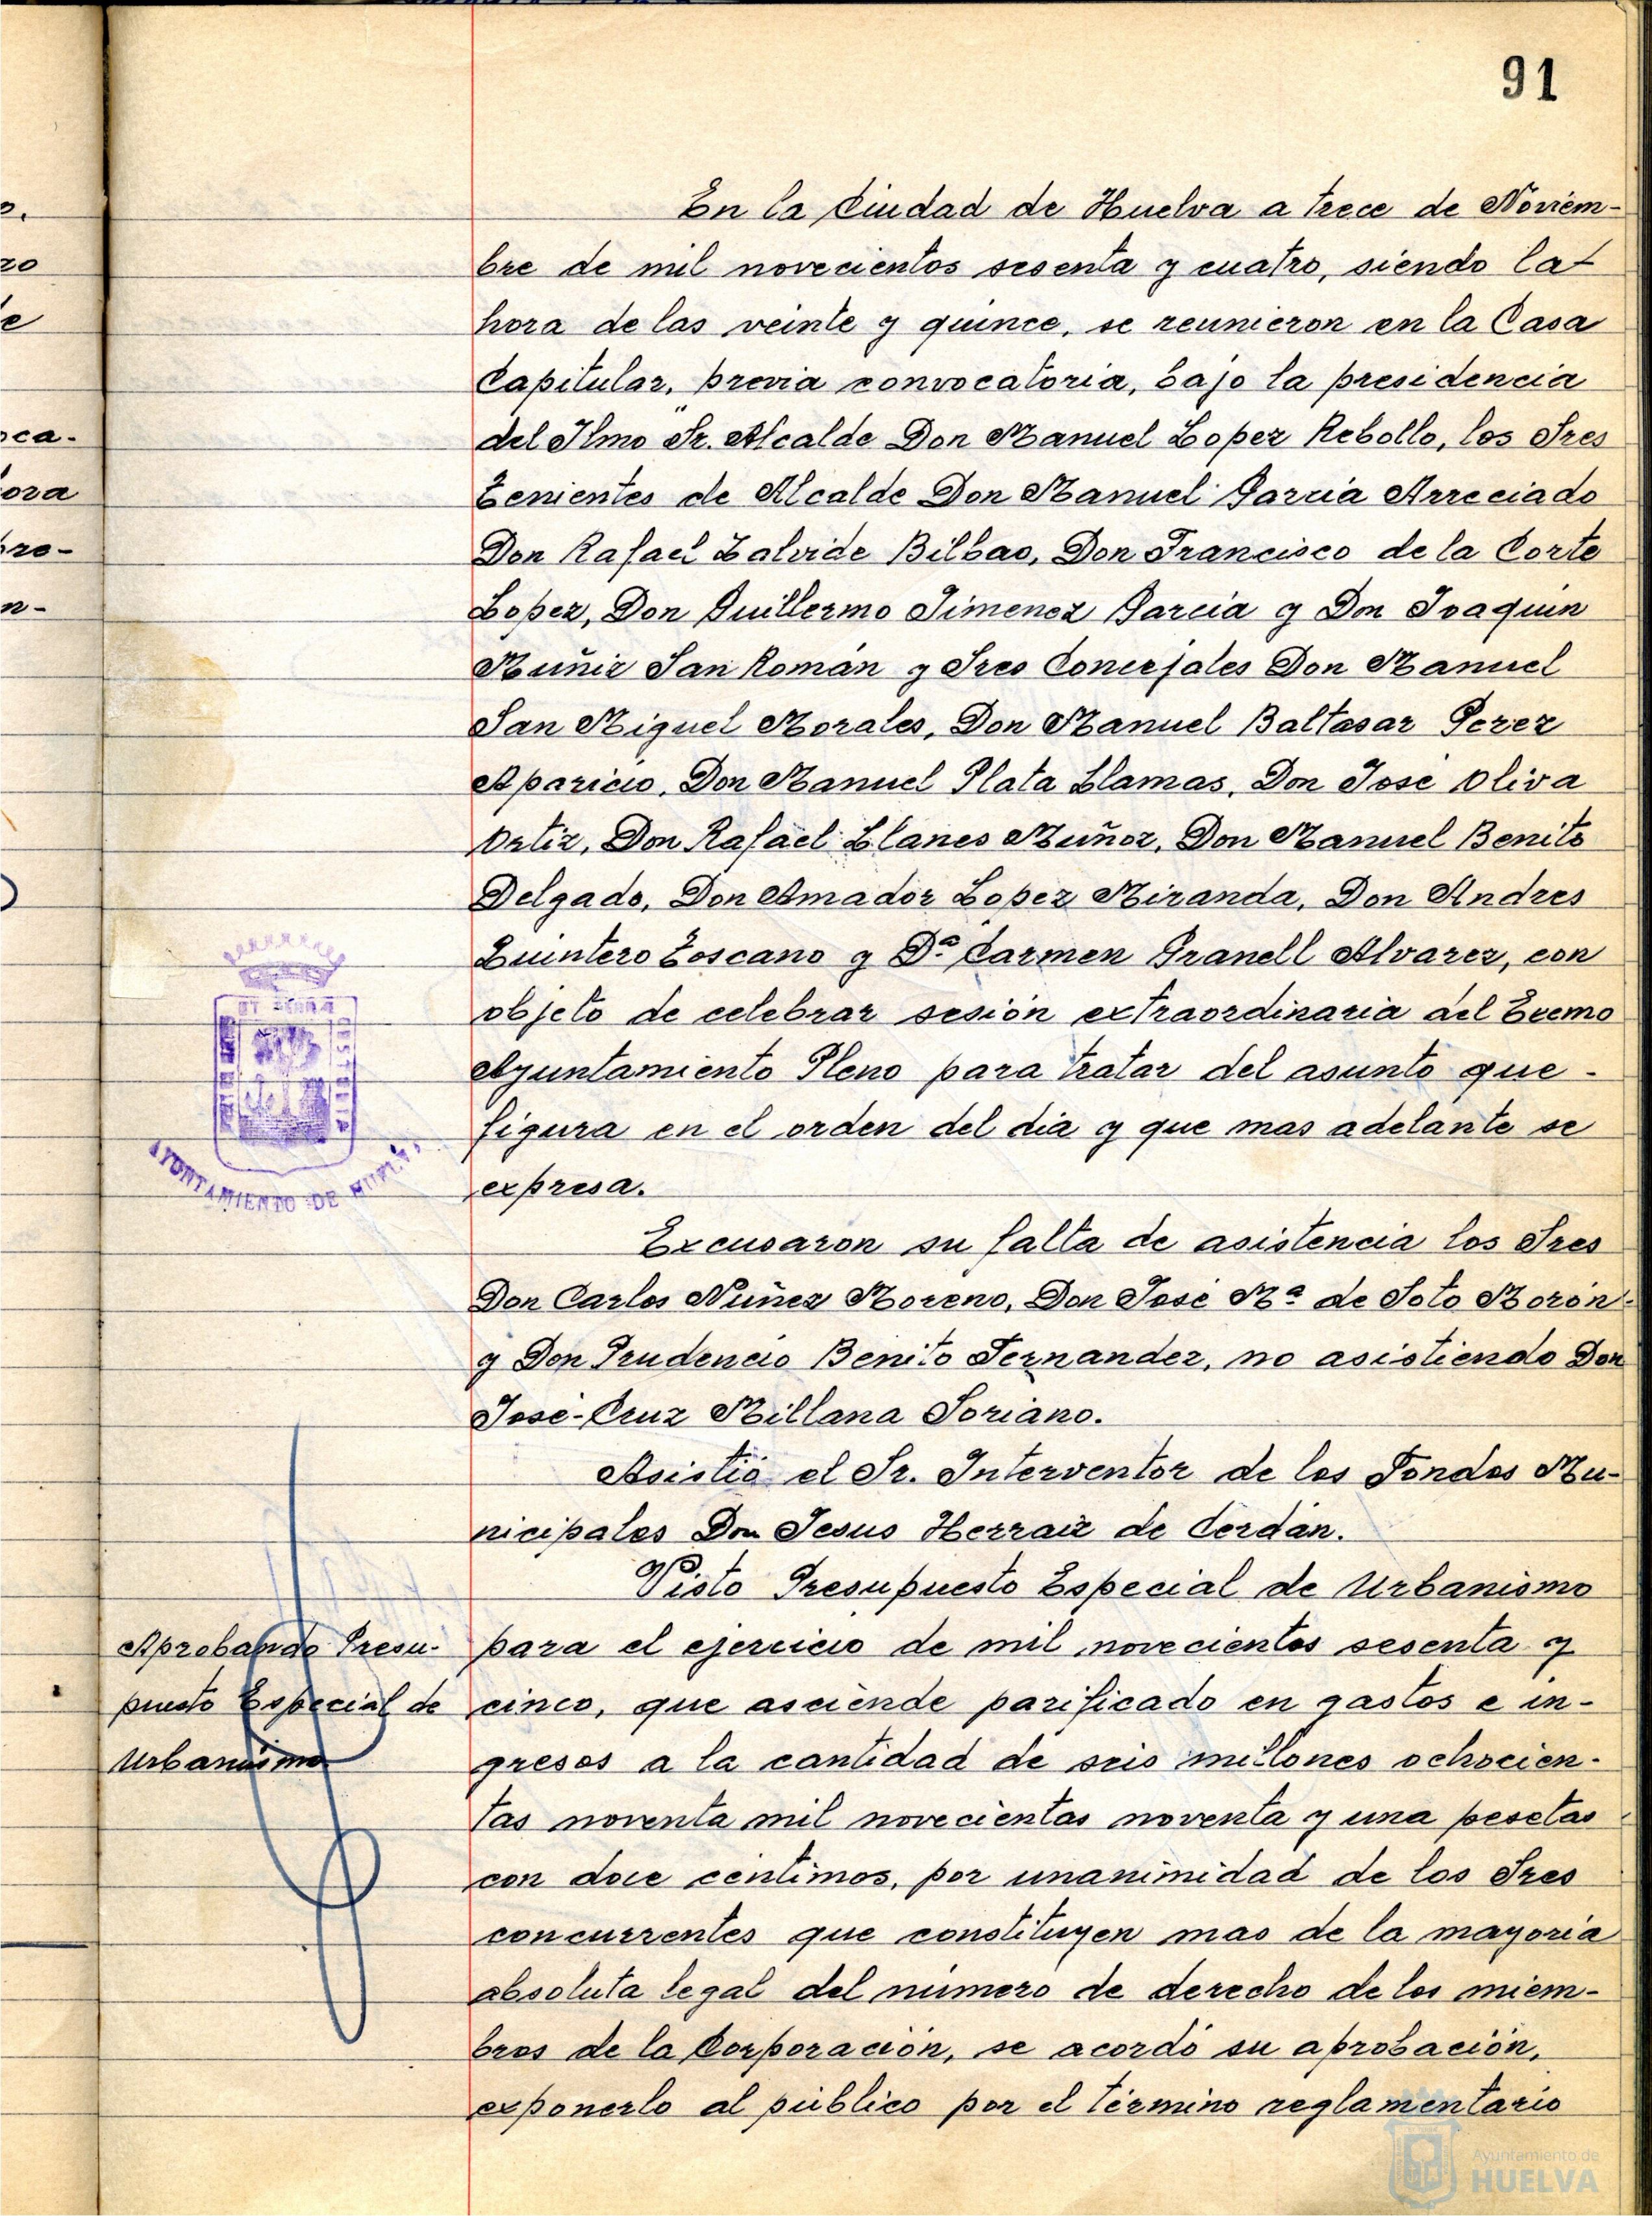 91
En la Ciudad de Huelva a trece de Noviem-
bre de mil novecientos sesenta y cuatro, siendo la
hora de las veinte y quince, se reunieron en la Casa
Capitular, previa convocatoria, bajo la presidencia
del Ilmo Sr. Alcalde Don Manuel Lopez Rebollo, los Sres
Tenientes de Alcalde Don Manuel Garcia Arreciado
Don Rafael Zalvide Bilbao, Don Francisco de la Corte
Lopez, Don Guillermo Jimenez Garcia y Don Joaquin
Muñiz San Román y Sres Concejales Don Manuel
San Miguel Morales, Don Manuel Baltasar Perez
Aparicio, Don Manuel Plata Llamas, Don José Oliva
Ortiz, Don Rafael Llanes Muñoz, Don Manuel Benito
Delgado, Don Amador Lopez Miranda, Don Andres
Quintero Toscano y Dª Carmen Granell Alvarez, con
objeto de celebrar sesión extraordinaria del Excmo
Ayuntamiento Pleno para tratar del asunto que
figura en el orden del dia y que mas adelante se
expresa.
AYUNTAMIENTO DE HUELVA
Excusaron su falta de asistencia los Sres
Don Carlos Nuñez Moreno, Don José Mª de Soto Morón
y Don Prudencio Benito Fernandez, no asistiendo Don
José-Cruz Millana Soriano.
Asistió el Sr. Interventor de los Fondos Mu-
nicipales Don Jesus Herraiz de Cerdán.
Visto Presupuesto Especial de Urbanismo
Aprobando Presu-
puesto Especial de
Urbanismo
para el ejercicio de mil novecientos sesenta y
cinco, que asciende parificado en gastos e in-
gresos a la cantidad de seis millones ochocien-
tas noventa mil novecientas noventa y una pesetas
con doce centimos, por unanimidad de los Sres
concurrentes que constituyen mas de la mayoria
absoluta legal del número de derecho de los miem-
bros de la Corporación, se acordó su aprobación,
exponerlo al público por el término reglamentario
Ayuntamiento de
HUELVA